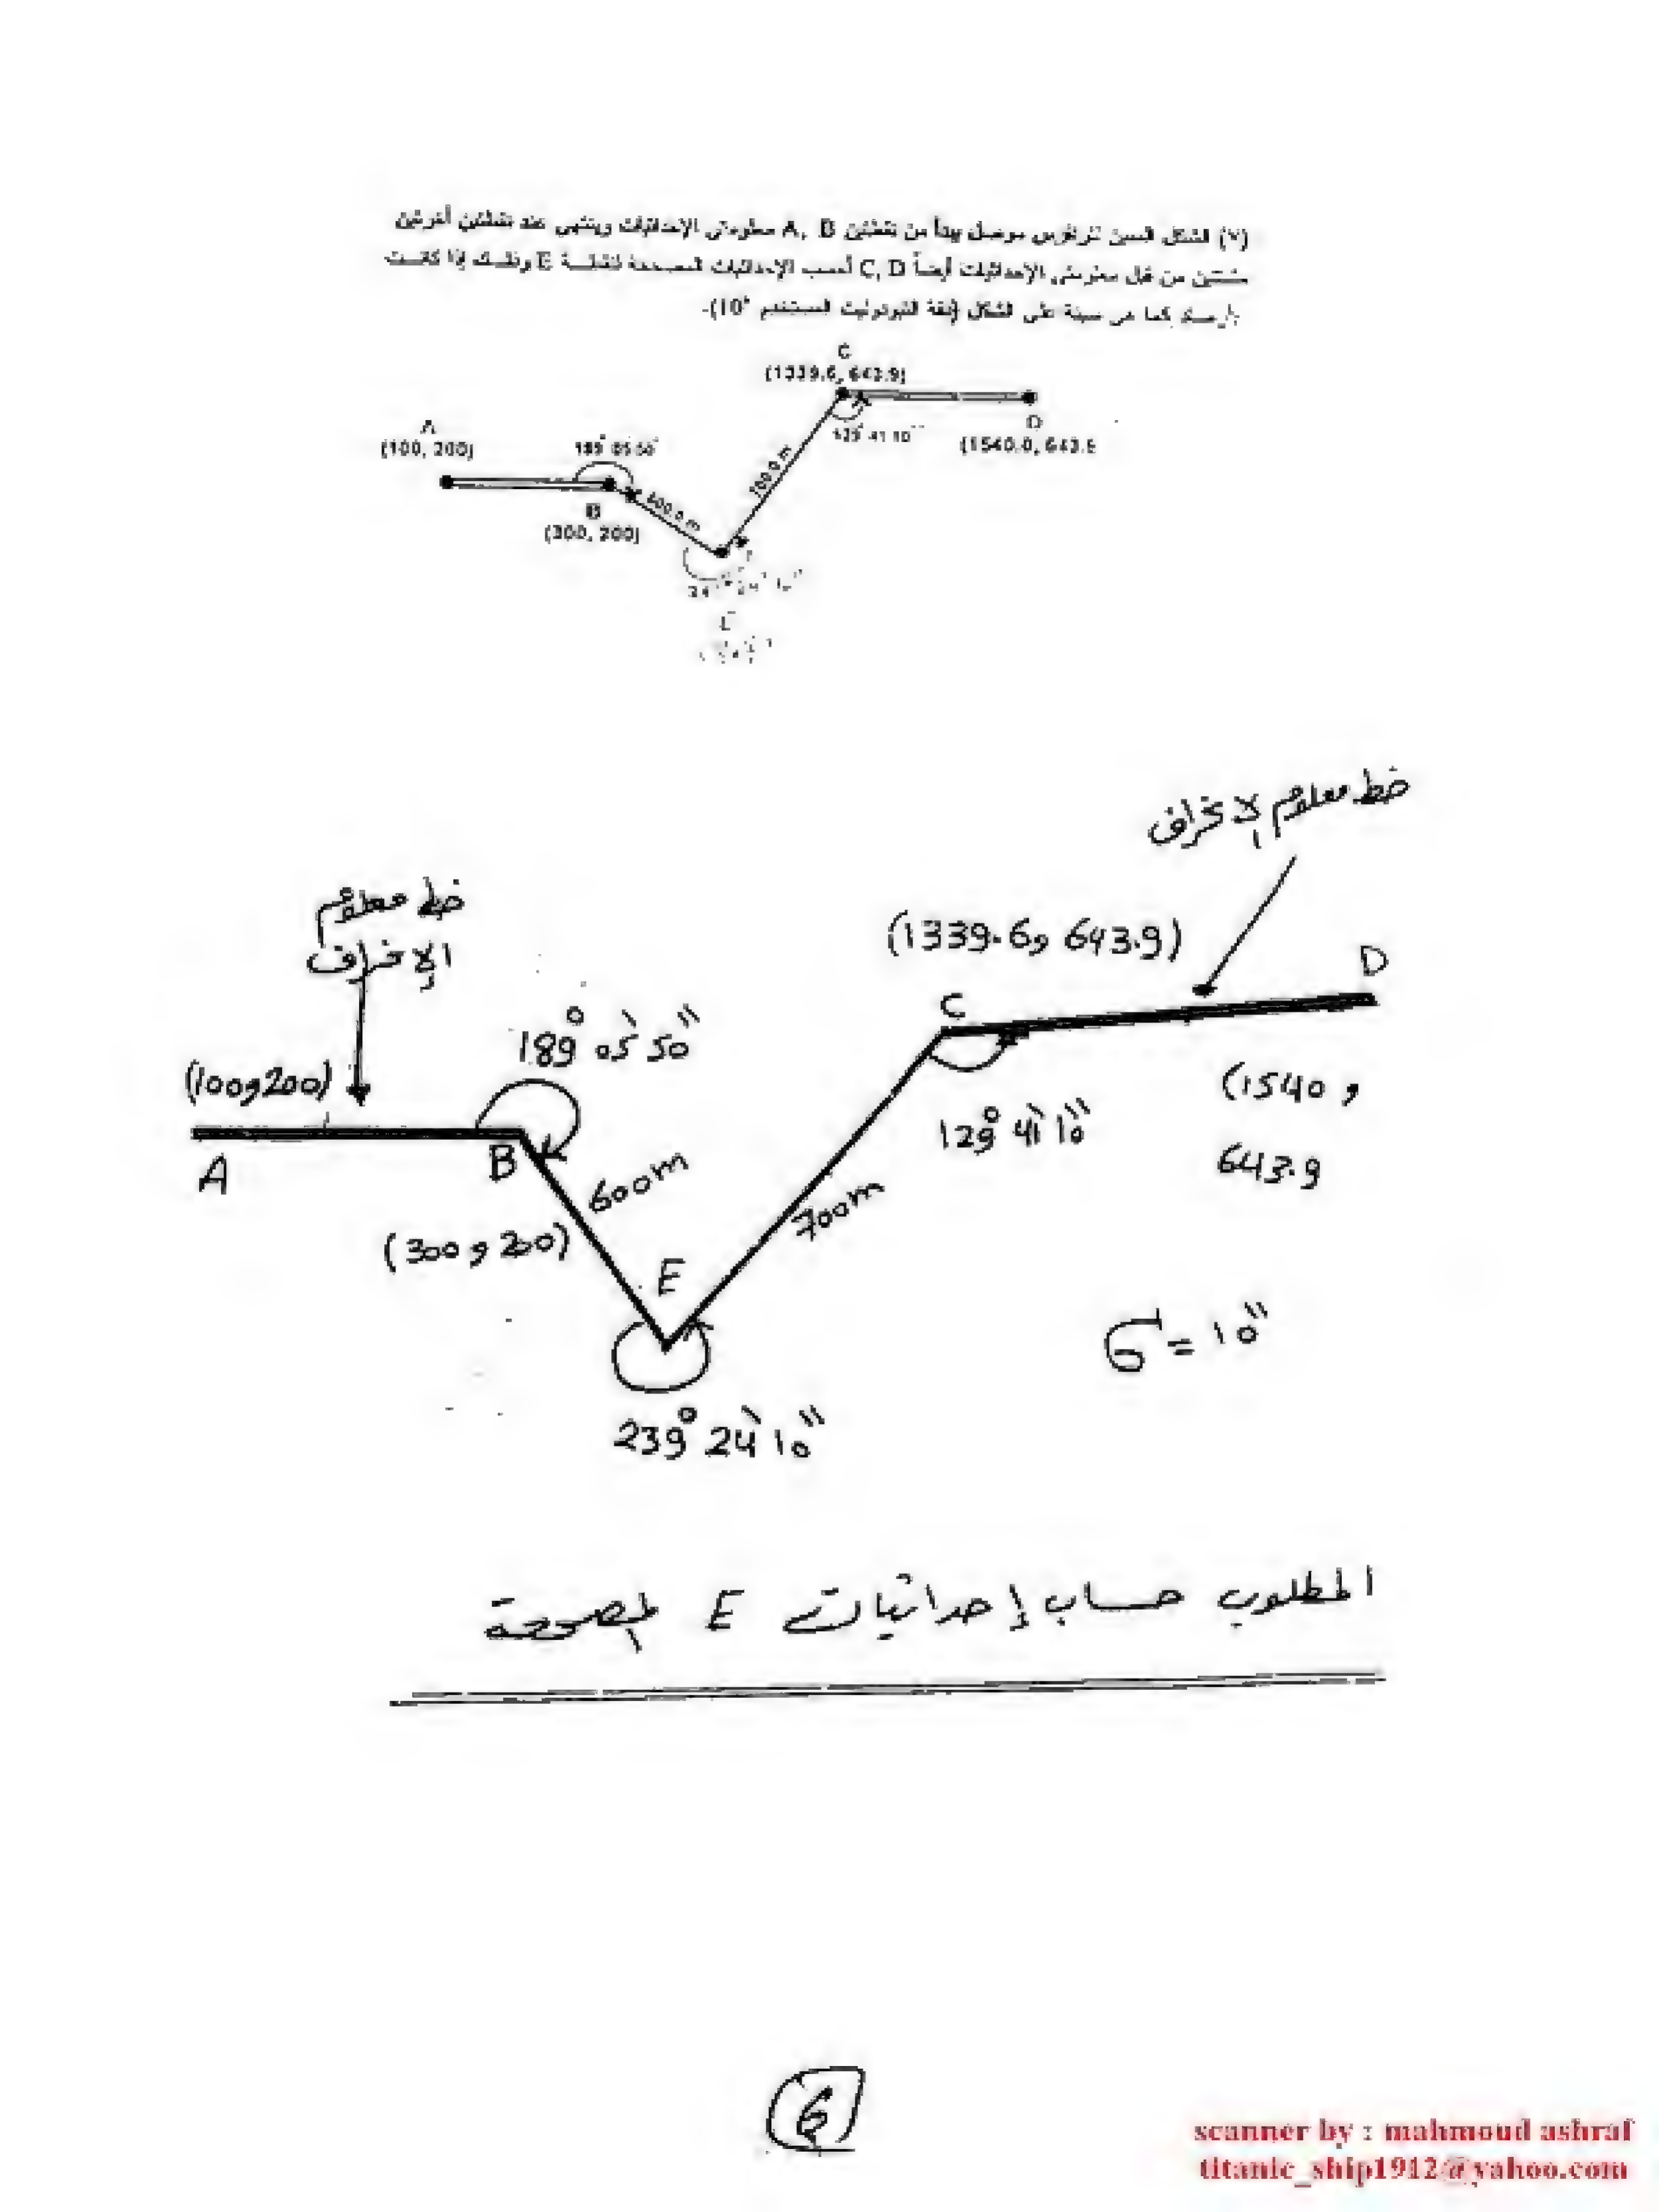 (٧) الشكل المبين لترافرس موصل يبدأ من نقطتين A, B معلومتى الإحداثيات وينتهى عند نقطتين أخرتين
مثبتين من قبل معلومتى الإحداثيات أيضاً C, D أحسب الإحداثيات المصححة لنقطة E وذلك إذا كانت
الأرصاد كما هى مبينة على الشكل (دقة التيودوليت المستخدم 10").
C
(1339.6, 643.9)
A
(100, 200)
189° 05 50"
129° 41 10"
D
(1540.0, 643.9
700.0 m
600.0 m
B
(300, 200)
خط معلوم الإنحراف
خط معلوم
الإنحراف
(1339.6, 643.9)
D
C
189° 05' 50"
(100, 200)
(1540,
129° 41' 10"
643.9
A
B
600m
700m
(300, 200)
E
σ = 10"
239° 24' 10"
المطلوب حساب إحداثيات E المصححة
6
scanner by : mahmoud ashraf
titanic_ship1912@yahoo.com